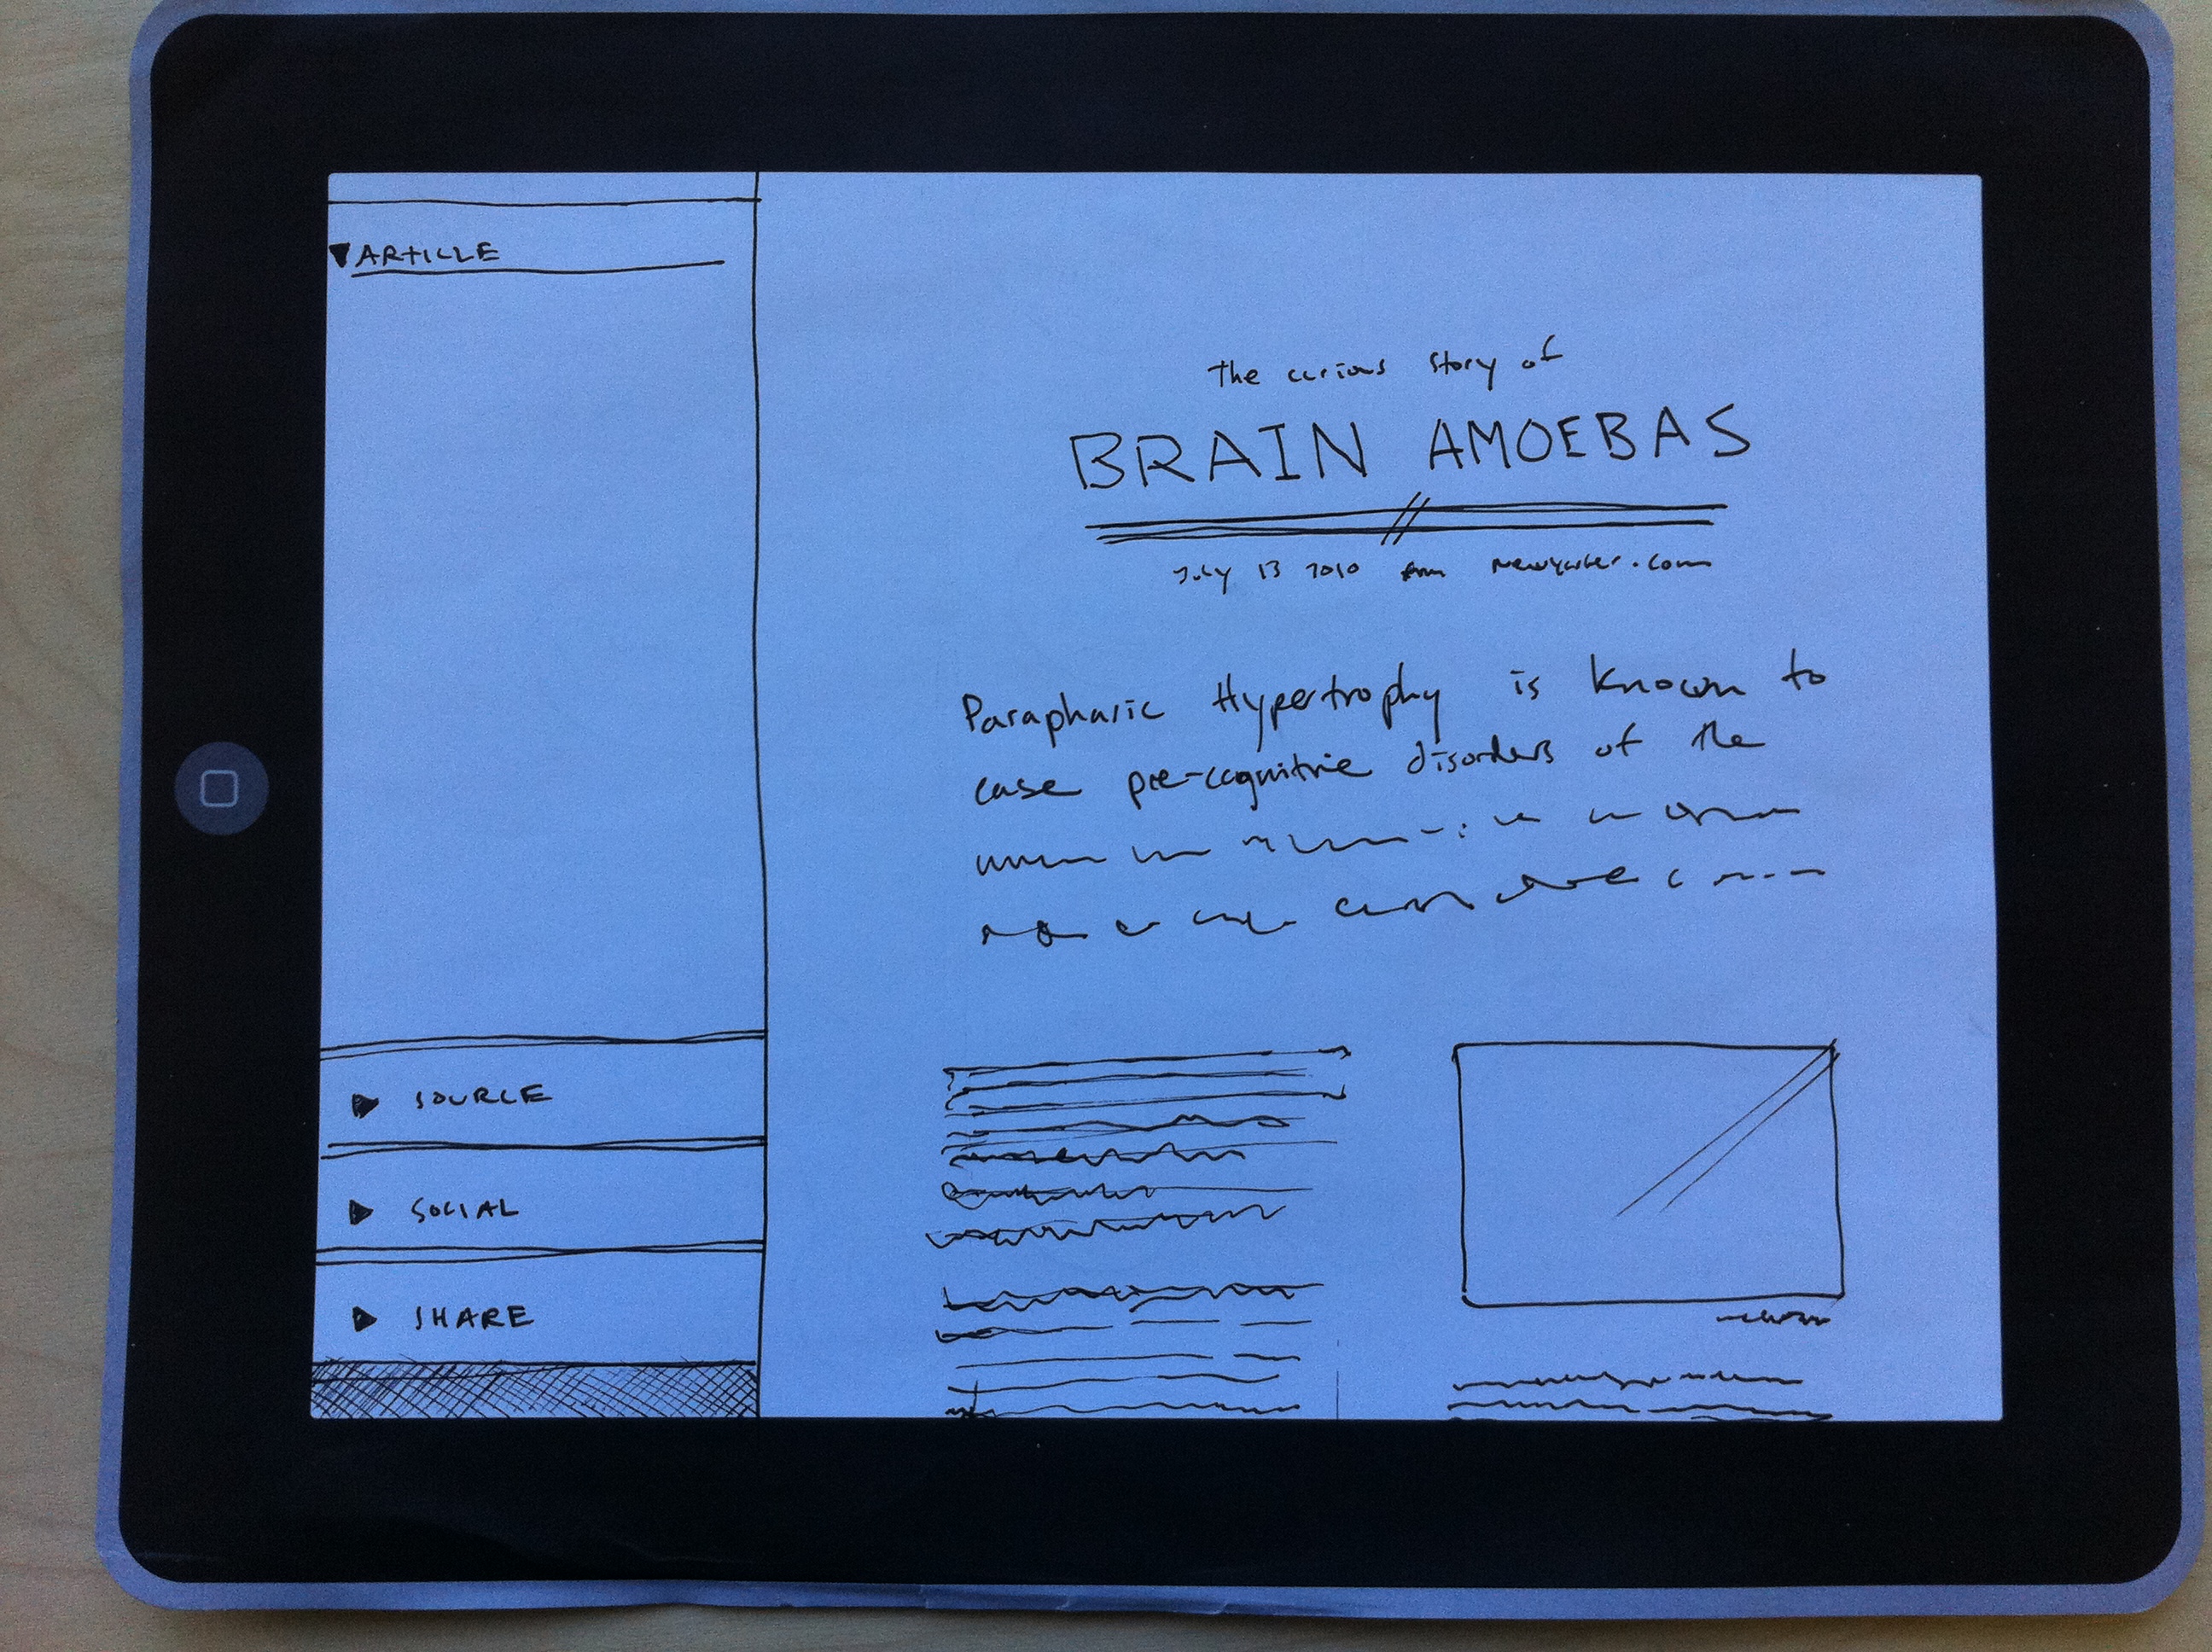 ARTICLE
SOURCE
SOCIAL
SHARE
The curious story of
BRAIN AMOEBAS
July 13 2010 from newyorker.com
Parapharic Hypertrophy is known to
case pre-cognitive disorders of the